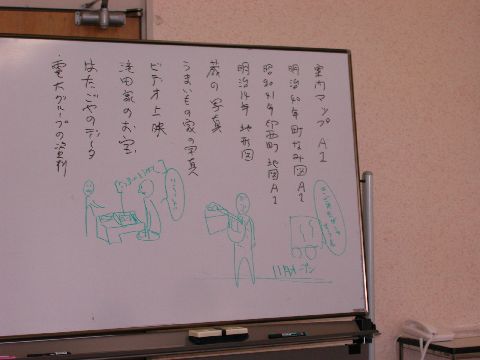 室内マップ A1
明治40年町なみ図A2
昭和41年印西町地図A2
明治14年地形図
蔵の写真
うまいもの家の写真
ビデオ上映
滝田家のお宝
はたごやのデータ
・電大グループの資料
11月オープン